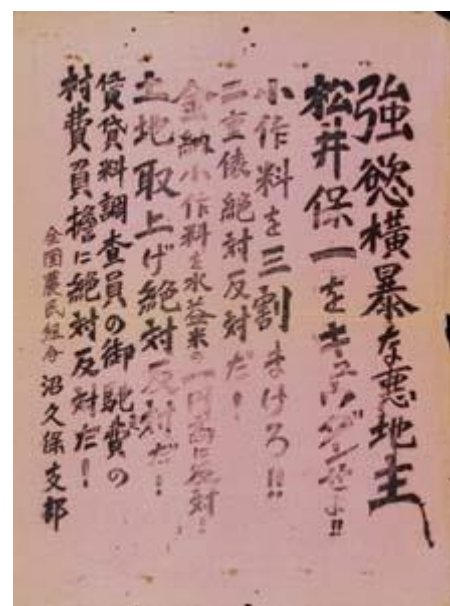 強慾横暴な悪地主
松井保一をキュウダンせよ!!
小作料を三割まけろ!!
二重俵絶対反対だ!
金納小作料を水益米の一円高に反対!
土地取上げ絶対反対だ!
賃貸料調査員の御馳走費の
村費負担に絶対反対だ!
全国農民組合 沼久保支部